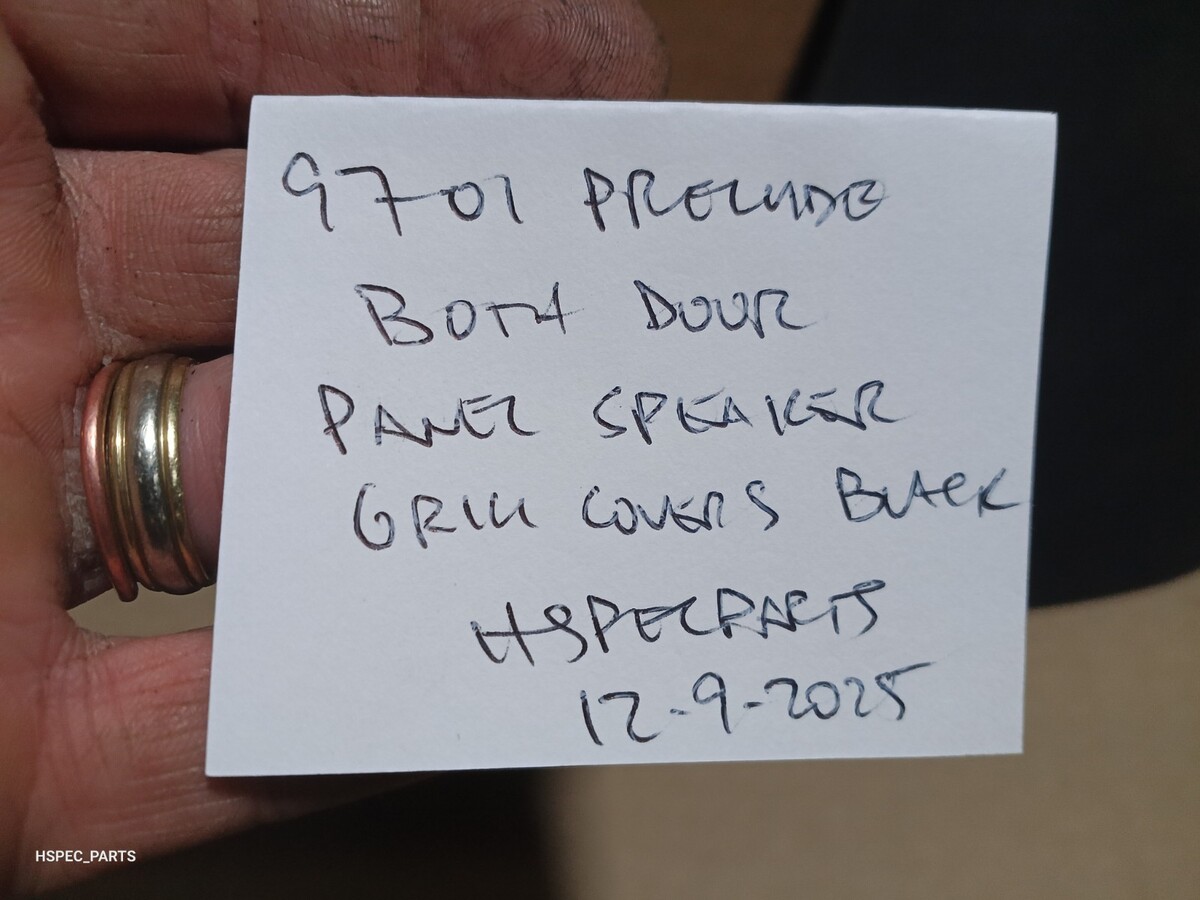 97-01 PRELUDE
BOTH DOOR
PANEL SPEAKER
GRILL COVERS BLACK
HSPECPARTS
12-9-2025
HSPEC_PARTS